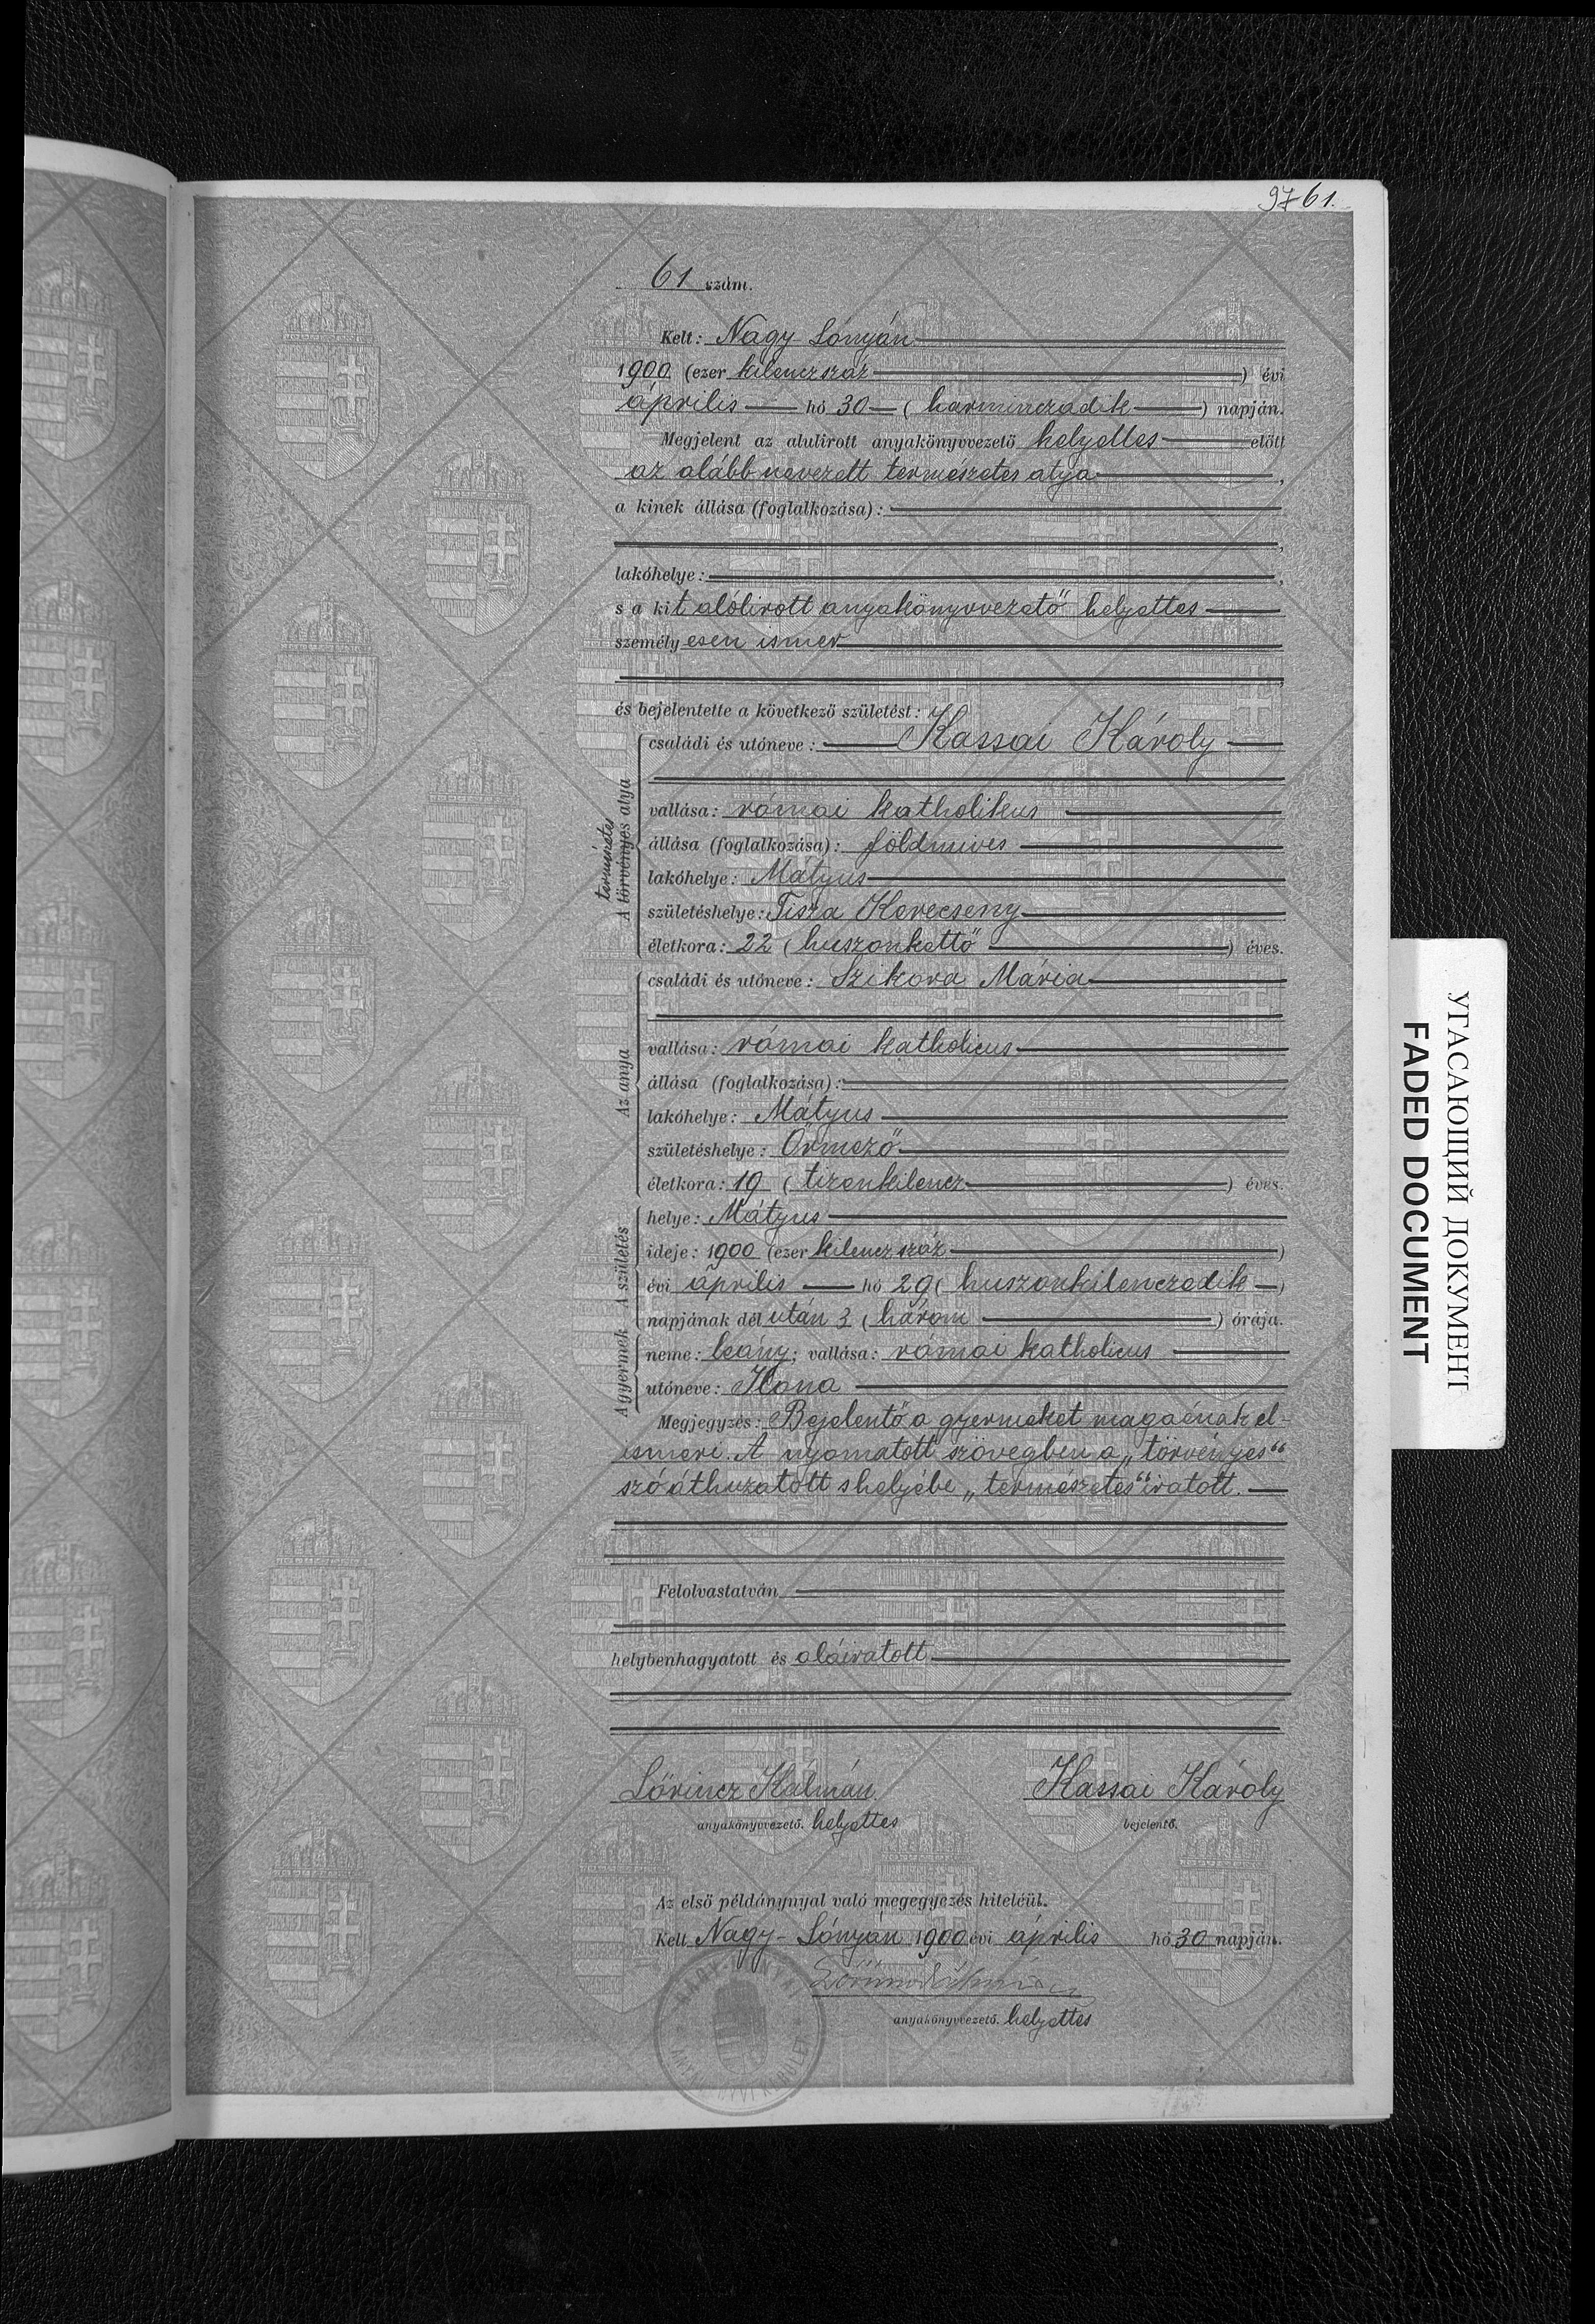 97 61.
61 szám.
Kelt: Nagy Lónyán
1900 (ezer kilenczszáz) évi
április hó 30 (harminczadik) napján.
Megjelent az alulirott anyakönyvvezető helyettes előtt
az alább nevezett természetes atya,
a kinek állása (foglalkozása):
lakóhelye:
s a kit alólirott anyakönyvvezető helyettes
személyesen ismer
és bejelentette a következő születést:
természetes
A törvényes atya
családi és utóneve: Kassai Károly
vallása: római katholikus
állása (foglalkozása): földmives
lakóhelye: Mátyus
születéshelye: Tisza Kerecseny
életkora: 22 (huszonkettő) éves.
Az anya
családi és utóneve: Szikora Mária
vallása: római katholicus
állása (foglalkozása):
lakóhelye: Mátyus
születéshelye: Őrmező
életkora: 19 (tizenkilencz) éves.
A születés
helye: Mátyus
ideje: 1900 (ezer kilenczszáz)
évi április hó 29 (huszonkilenczedik)
napjának dél után 3 (három) órája.
A gyermek
neme: leány; vallása: római katholicus
utóneve: Ilona
Megjegyzés: Bejelentő a gyermeket magaénak el-
ismeri. A nyomatott szövegben a „törvényes“
szó áthuzatott s helyébe „természetes“ iratott.
Felolvastatván
helybenhagyatott és aláiratott
Lőrincz Kálmán Kassai Károly
anyakönyvvezető. helyettes bejelentő.
Az első példánynyal való megegyezés hiteléül.
Kelt Nagy-Lónyán 1900 évi április hó 30 napján.
Lőrincz Kálmán
anyakönyvvezető. helyettes
УГАСАЮЩИЙ ДОКУМЕНТ
FADED DOCUMENT